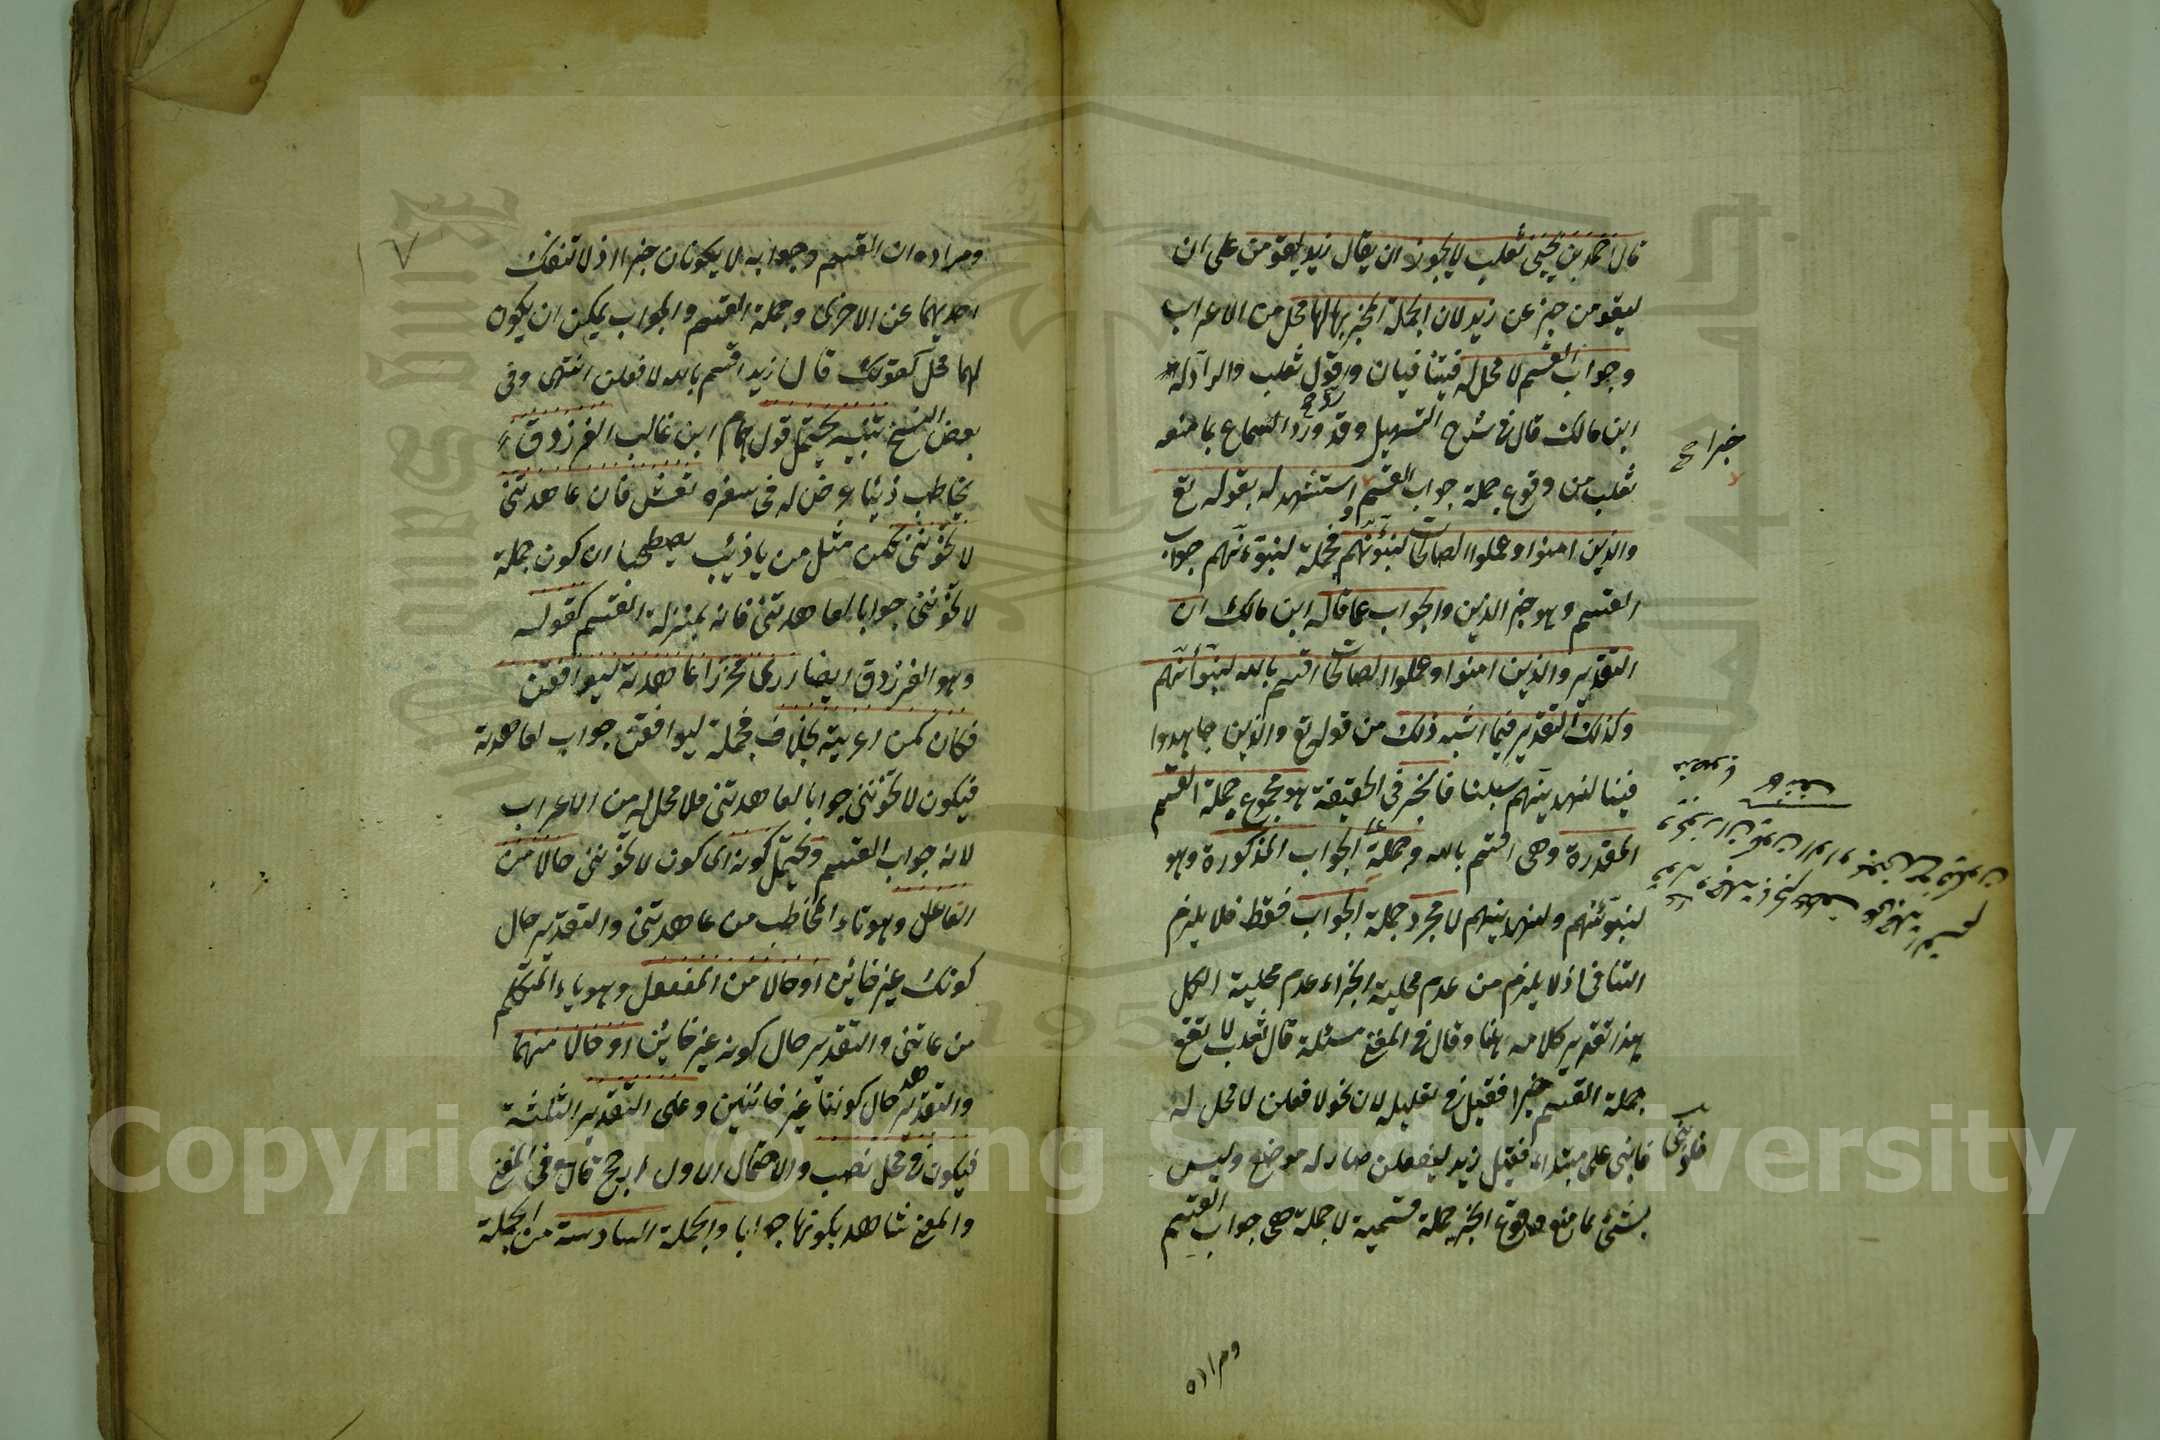 قال احمد بن يحيى ثعلب لا يجوز ان يقال زيد ليقومن على ان
ليقومن خبر عن زيد لان الجملة المخبر بها لها محل من الاعراب
وجواب القسم لا محل له فيتنافيان ورد قول ثعلب والراد له
ابن مالك قال في شرح التسهيل وقد ورد السماع بما منعه
ثعلب من وقوع جملة جواب القسم واستشهد له بقوله تع
والذين امنوا وعملوا الصالحات لنبوئنهم فجملة لنبوءنهم جواب
القسم وهو خبر الذين والجواب عما قاله ابن مالك ان
التقدير والذين امنوا وعملوا الصالحات اقسم بالله لنبوأنهم
وكذلك التقدير فيما اشبه ذلك من قوله تع والذين جاهدوا
فينا لنهدينهم سبلنا فالخبر في الحقيقة هو مجموع جملة القسم
المقدرة وهى اقسم بالله وجملة الجواب المذكورة وهو
لنبوئنهم ولنهدينهم لا مجرد جملة الجواب فقط فلا يلزم
التنافى اذ لا يلزم من عدم محلية الجزاء عدم محلية الكل
هذا تقدير كلامه هنا وقال في المغنى مسئلة قال ثعلب لا تقع
جملة القسم خبرا فقيل في تعليله لان نحو لافعلن لا محل له
فاذا بنى على مبتداء فقيل زيد ليفعلن صار له موضع وليس
بشئ لما منع وقوع الخبر جملة قسمية لا جملة هى جواب القسم
خبرا صح
ومراده
ومراده ان القسم وجوابه لا يكونان خبرا اذ لا تنفك
احديهما عن الاخرى وجملة القسم والجواب يمكن ان يكون
لهما محل كقولك قال زيد اقسم بالله لافعلن انتهى وفى
بعض النسخ تنبيه يحتمل قول همام ابن غالب الفرزدق
يخاطب ذئبا عرض له في سفره تعش فان عاهدتنى
لا تخوننى نكن مثل من يا ذئب يصطحبا ان كون جملة
لا تخوننى جوابا لعاهدتنى فانه بمنزلة القسم كقوله
وهو الفرزدق ايضا ارى محرزا عاهدته ليوافقن
فكان كمن اغريته بخلاف فجملة ليوافقن جواب لعاهدته
فيكون لا تخوننى جوابا لعاهدتنى فلا محل له من الاعراب
لانه جواب القسم ويحتمل كونه اى كون لا تخوننى حالا من
الفاعل وهو تاء المخاطب من عاهدتنى والتقدير حال
كونك غير خائن او حالا من المفعول وهو ياء المتكلم
من عاتنى والتقدير حال كونه غير خائن او حالا منهما
والتقدير حال كوننا غير خائنين وعلى التقدير الثلثة
فيكون في محل نصب والاحتمال الاول ارجح قال في المغنى
والمعنى شاهد بكونها جوابا والجملة السادسة من الجملة
Copyright © King Saud University
1957